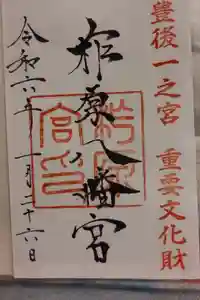 豊後一之宮 重要文化財
柞原八幡宮
令和六年十一月二十六日